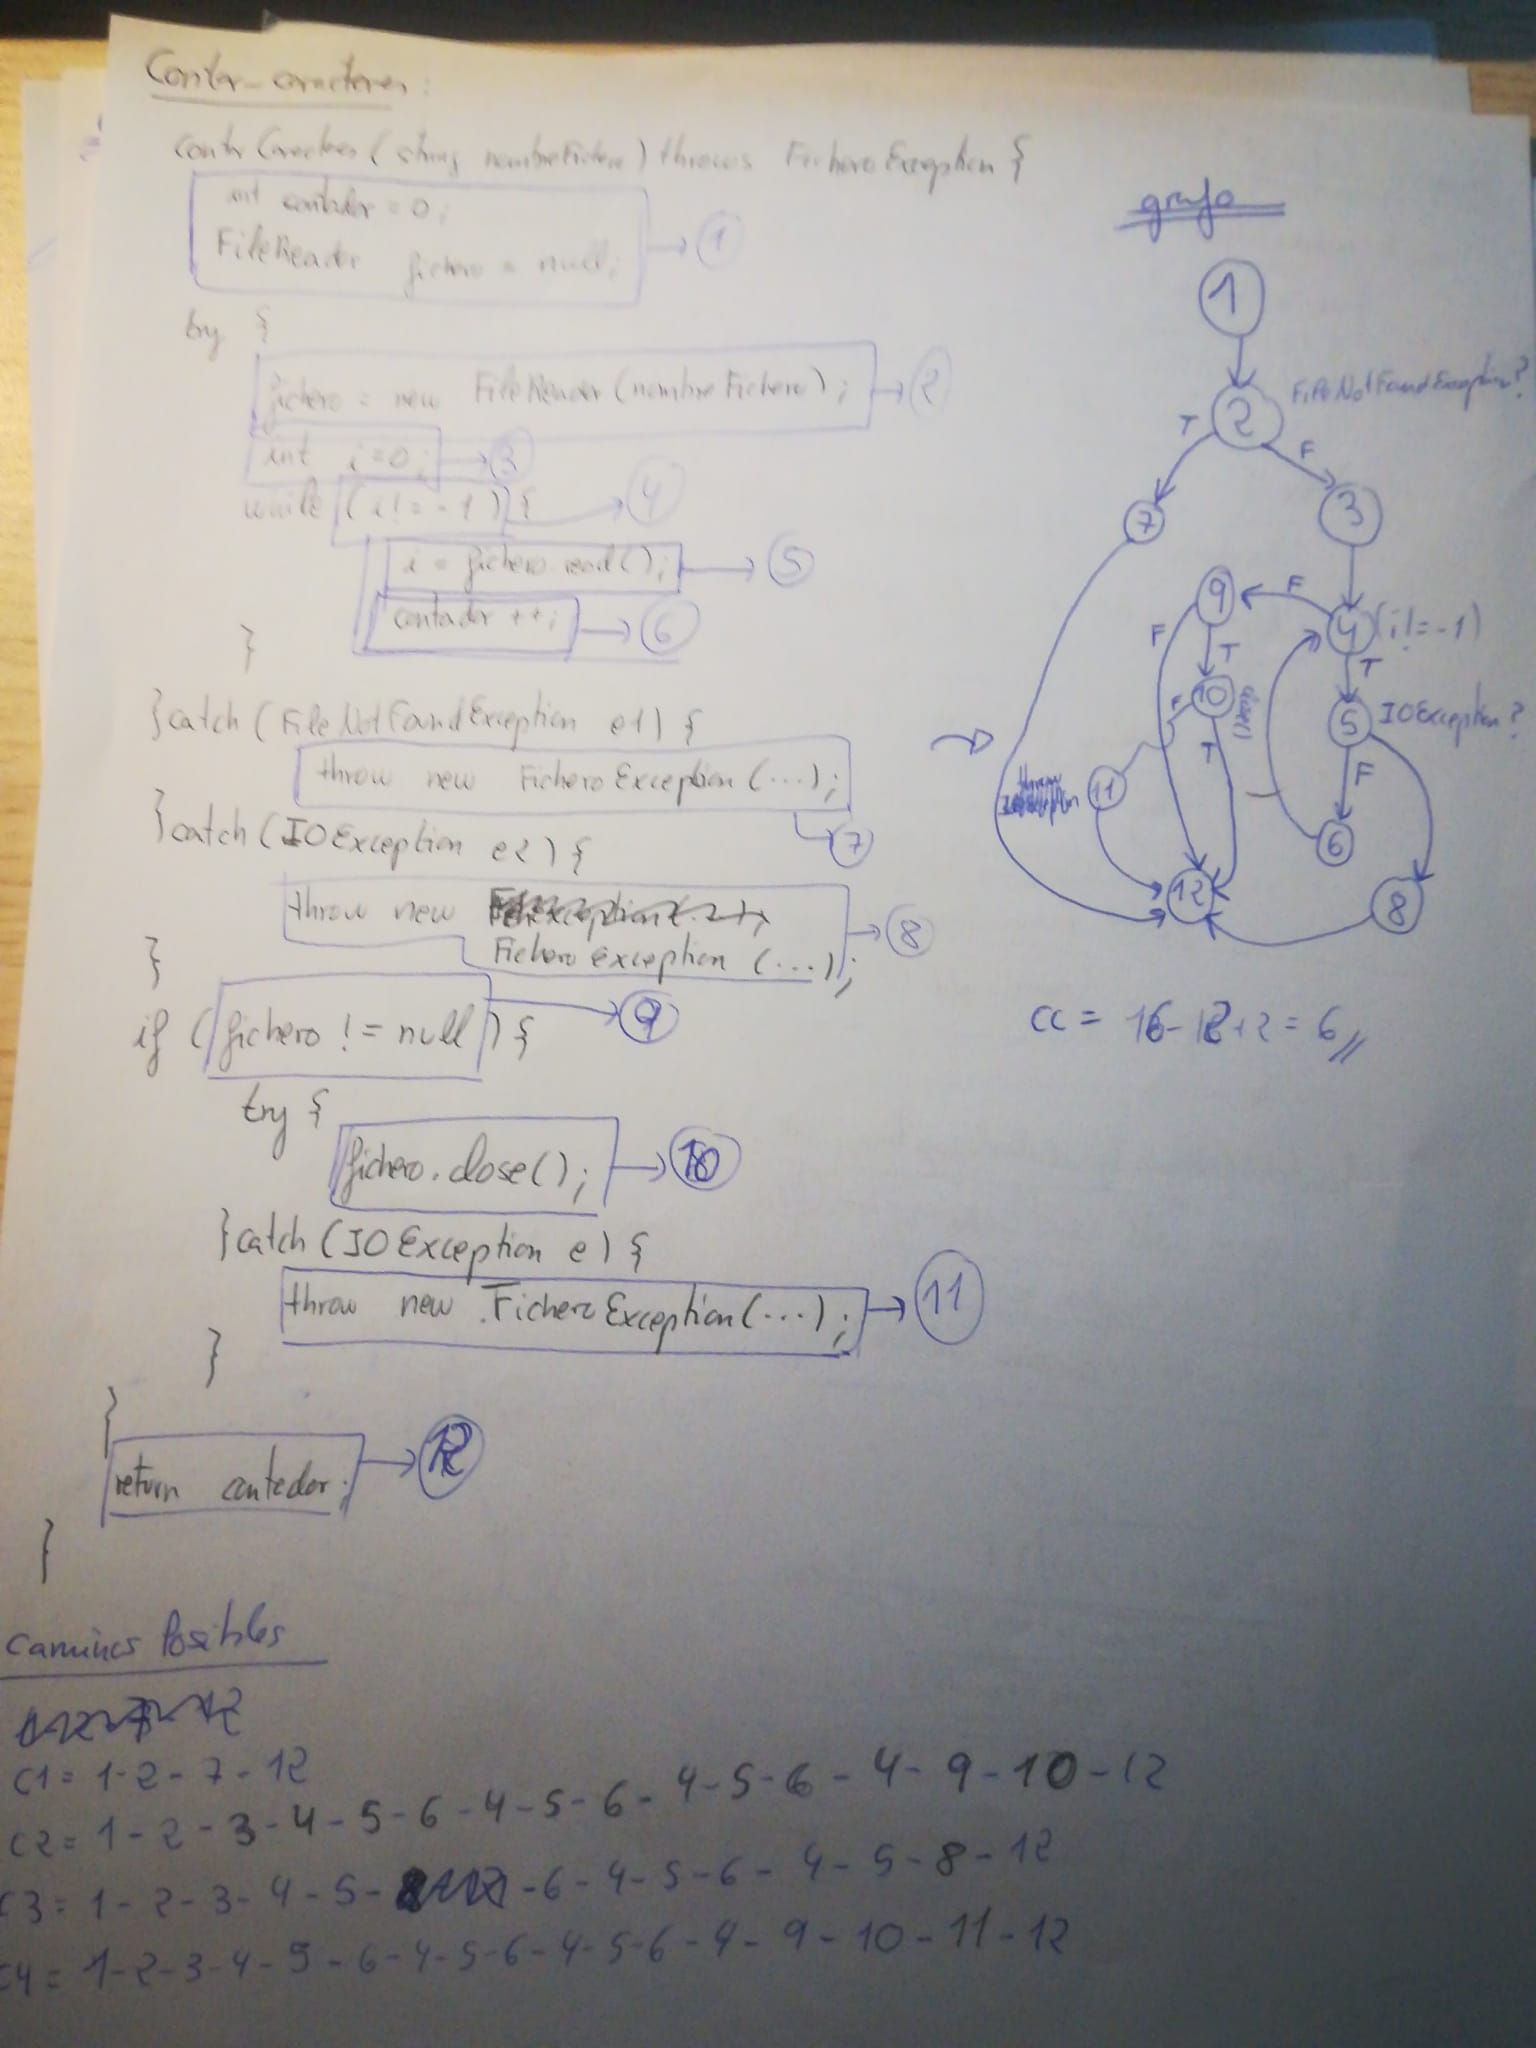 Contar_caracteres:
contarCaracteres (string nombreFichero) throws FicheroException {
int contador = 0;
FileReader fichero = null; → 1
try {
fichero = new FileReader (nombreFichero); → 2
int i = 0; → 3
while (i != -1) { → 4
i = fichero.read(); → 5
contador ++; → 6
}
} catch (FileNotFoundException e1) {
throw new FicheroException (...); → 7
} catch (IOException e2) {
throw new
FicheroException (...); → 8
}
if (fichero != null) { → 9
try {
fichero.close(); → 10
} catch (IOException e) {
throw new FicheroException (...); → 11
}
}
return contador; → 12
}
grafo
1
FileNotFoundException?
2
T F
7 3
9 F 4 (i! = -1)
F T T
10 close() 5 IOException?
F T F
11
6
12 8
CC = 16 - 12 + 2 = 6 //
Caminos Posibles
C1 = 1 - 2 - 7 - 12
C2 = 1 - 2 - 3 - 4 - 5 - 6 - 4 - 5 - 6 - 4 - 5 - 6 - 4 - 9 - 10 - 12
C3 = 1 - 2 - 3 - 4 - 5 - 6 - 4 - 5 - 6 - 4 - 5 - 8 - 12
C4 = 1 - 2 - 3 - 4 - 5 - 6 - 4 - 5 - 6 - 4 - 5 - 6 - 4 - 9 - 10 - 11 - 12